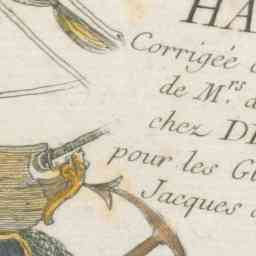 HA
Corrigée
de M.rs d
chez DE
pour les G
Jacques